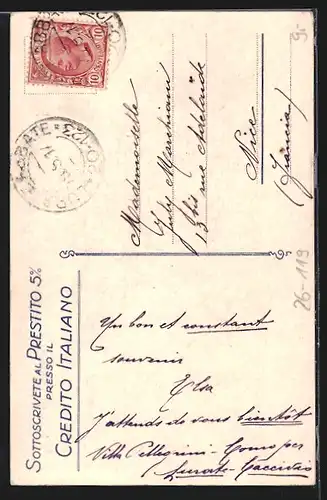 SOTTOSCRIVETE AL PRESTITO 5%
PRESSO IL
CREDITO ITALIANO
10 10
Mademoiselle
July Marchiani
13 bis rue Adélaïde
Nice
(Francia)
Un bon et constant
souvenir
Elsa
J'attends de vous bientôt
Villa Pellegrini - Como per
Lurate - Caccivio
26-119
9-